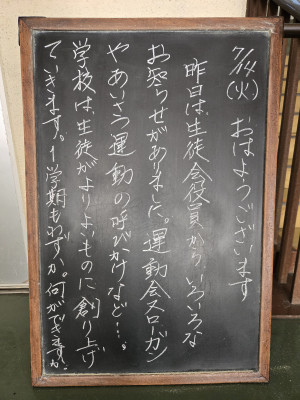 7/14(火) おはようございます
昨日は、生徒会役員から、いろいろな
お知らせがありました。運動会スローガン
や あいさつ運動の呼びかけなど…。
学校は、生徒がよりよいものに創り上げ
ていきます。1学期もわずか。何ができますか。